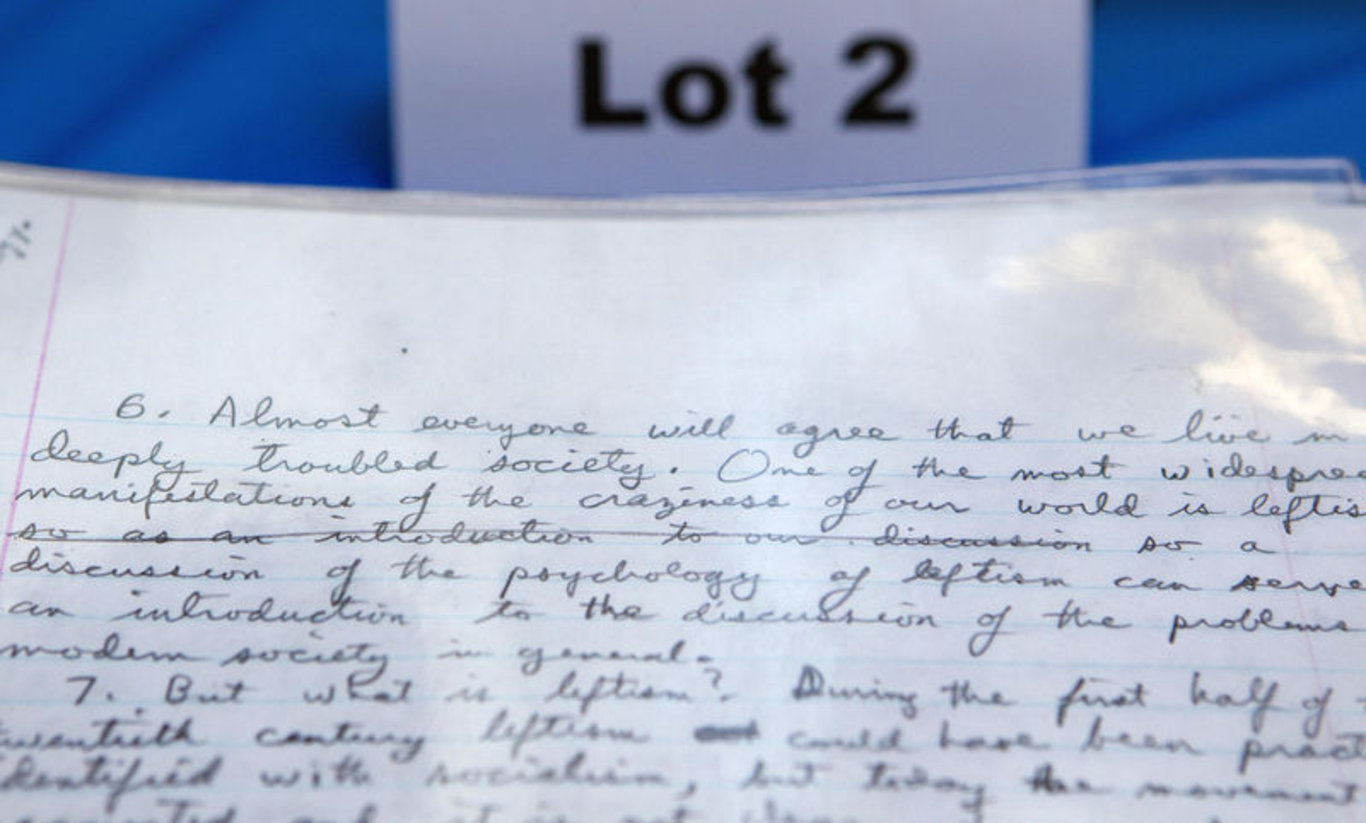 Lot 2
6. Almost everyone will agree that we live in
deeply troubled society. One of the most widesprea
manifestations of the craziness of our world is leftis
so as an introduction to our discussion so a
discussion of the psychology of leftism can serve
an introduction to the discussion of the problems
modern society in general.
7. But what is leftism? During the first half of
twentieth century leftism could have been pract
identified with socialism, but today the movement